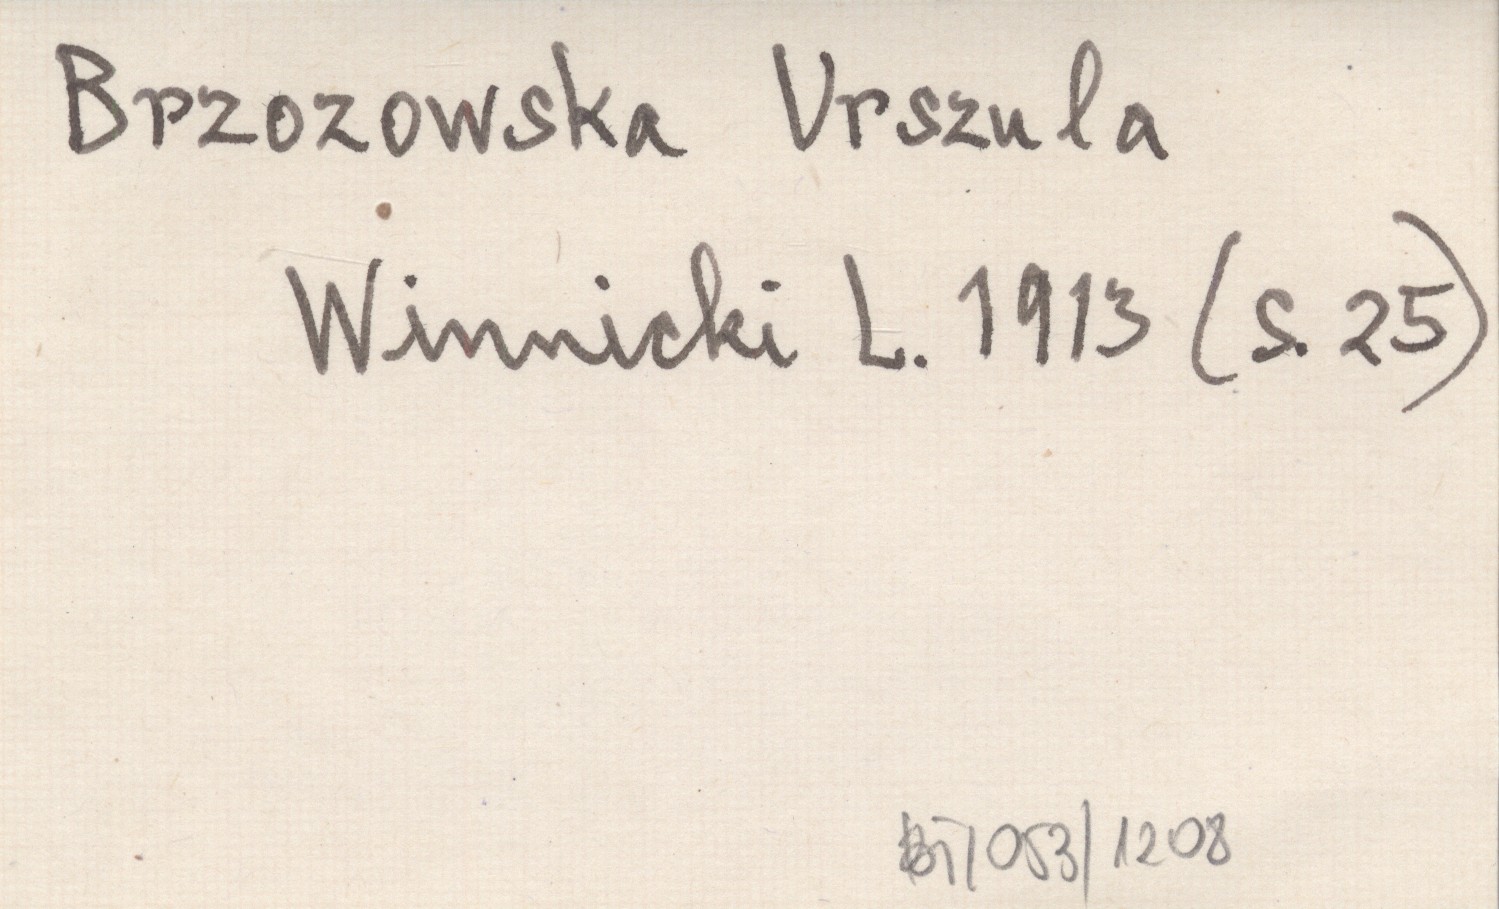 Brzozowska Urszula
Winnicki L. 1913 (s. 25)
/053/1208